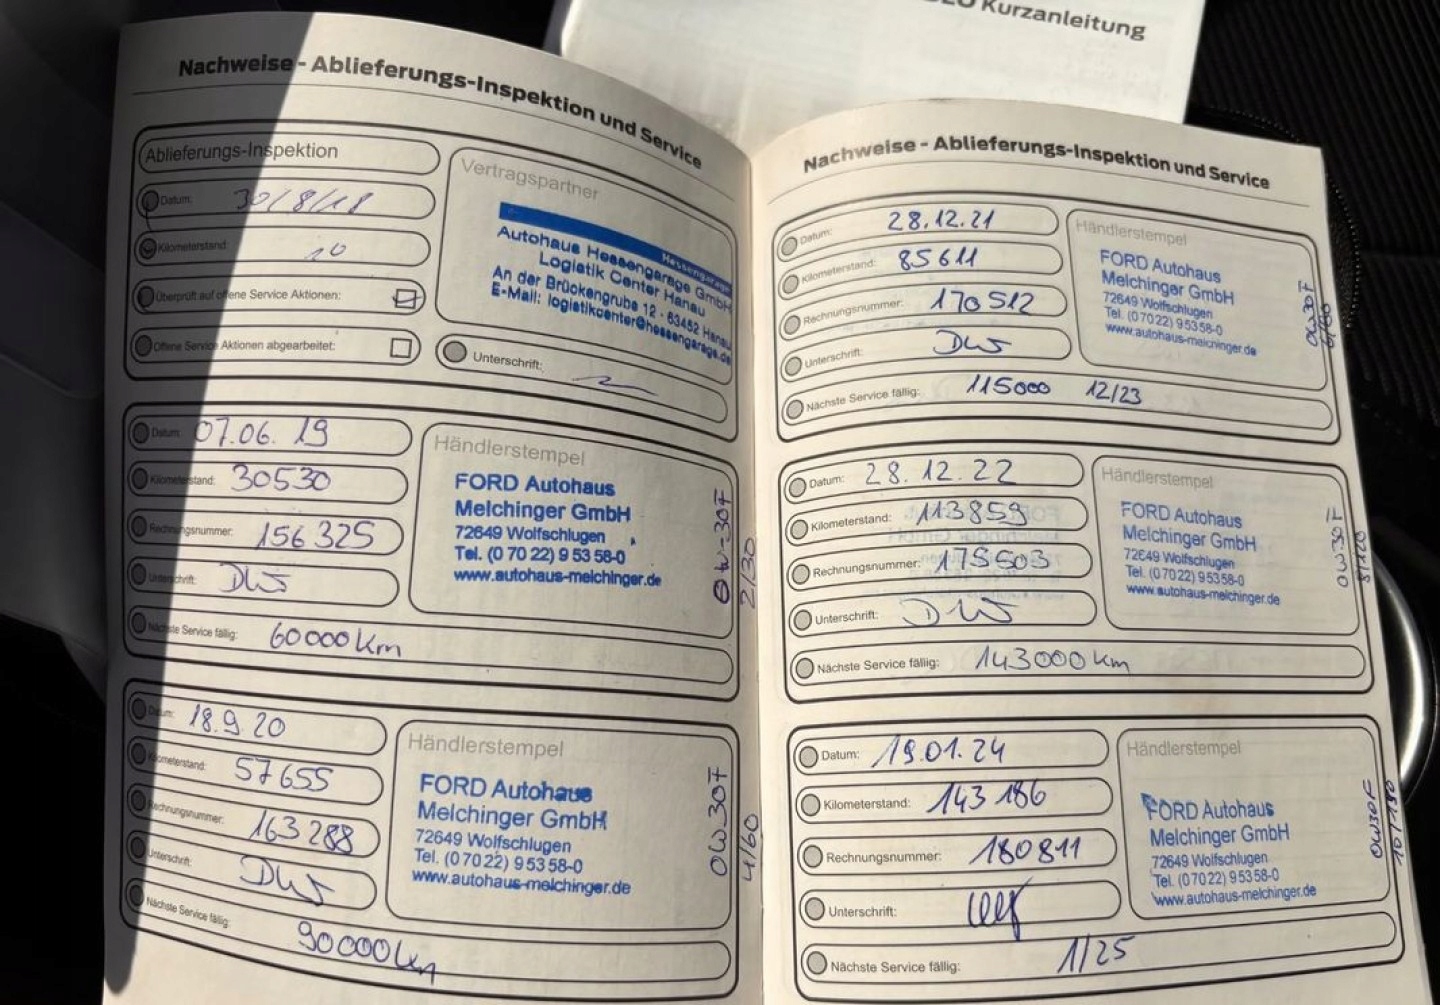 Kurzanleitung
Nachweise - Ablieferungs-Inspektion und Service
Ablieferungs-Inspektion
Datum: 30/8/18
Kilometerstand: 10
Überprüft auf offene Service Aktionen:
Offene Service Aktionen abgearbeitet:
Vertragspartner
Hessengarage
Autohaus Hessengarage GmbH
Logistik Center Hanau
An der Brückengrube 12 · 63452 Hanau
E-Mail: logistikcenter@hessengarage.de
Unterschrift:
Datum: 07.06.19
Kilometerstand: 30530
Rechnungsnummer: 156325
Unterschrift:
Nächste Service fällig: 60000Km
Händlerstempel
FORD Autohaus
Melchinger GmbH
72649 Wolfschlugen
Tel. (0 70 22) 9 53 58-0
www.autohaus-melchinger.de
0W-30F
2/30
Datum: 18.9.20
Kilometerstand: 57655
Rechnungsnummer: 163288
Unterschrift:
Nächste Service fällig: 90000Km
Händlerstempel
FORD Autohaus
Melchinger GmbH
72649 Wolfschlugen
Tel. (07022) 95358-0
www.autohaus-melchinger.de
0W30F
4/60
Nachweise - Ablieferungs-Inspektion und Service
Datum: 28.12.21
Kilometerstand: 85611
Rechnungsnummer: 170512
Unterschrift:
Nächste Service fällig: 115000 12/23
Händlerstempel
FORD Autohaus
Melchinger GmbH
72649 Wolfschlugen
Tel. (07022) 95358-0
www.autohaus-melchinger.de
0W30F
Datum: 28.12.22
Kilometerstand: 113859
Rechnungsnummer: 175503
Unterschrift:
Nächste Service fällig: 143000km
Händlerstempel
FORD Autohaus
Melchinger GmbH
72649 Wolfschlugen
Tel. (07022) 95358-0
www.autohaus-melchinger.de
8/120
Datum: 19.01.24
Kilometerstand: 143186
Rechnungsnummer: 180811
Unterschrift:
Nächste Service fällig: 1/25
Händlerstempel
FORD Autohaus
Melchinger GmbH
72649 Wolfschlugen
Tel. (07022) 95358-0
www.autohaus-melchinger.de
0W30F